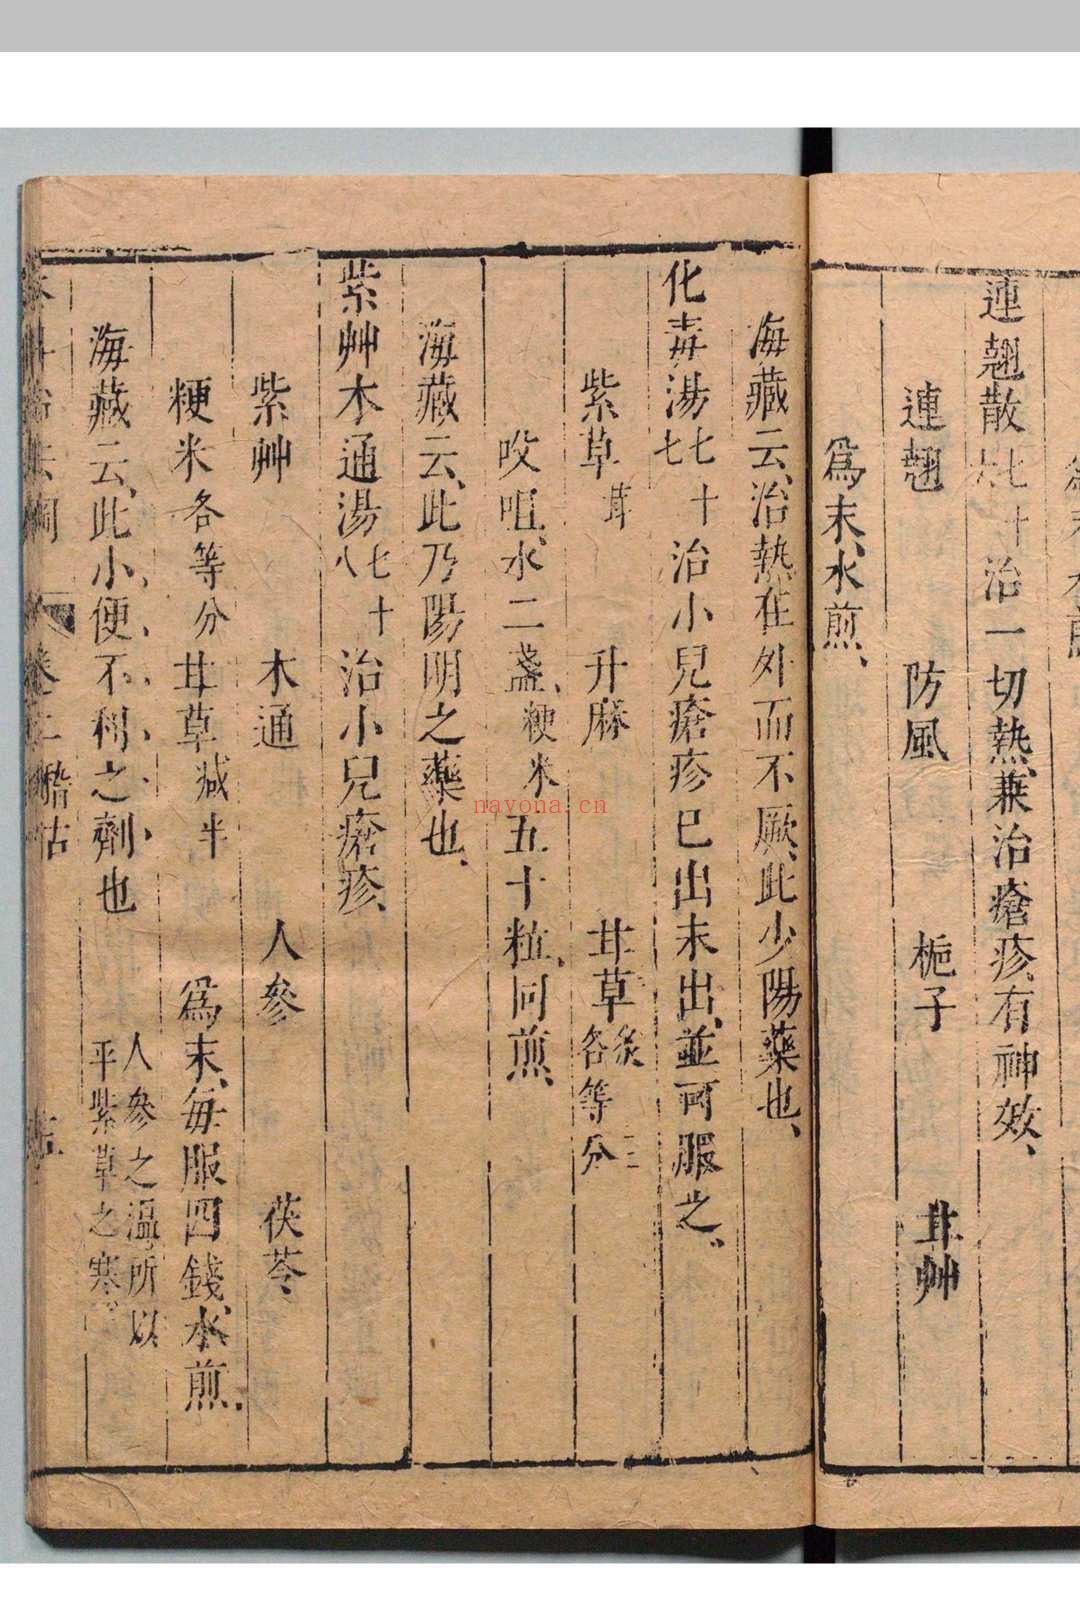 連翹散七十六治一切熱、兼治瘡疹、有神效、
連翹 防風 梔子 甘艸
爲末、水煎、
海藏云、治熱在外而不厥、此少陽藥也、
化毒湯七十七治小兒瘡疹已出未出、並可服之、
紫草茸 升麻 甘草炙各等分
㕮咀、水二盞、粳米五十粒、同煎、
海藏云、此乃陽明之藥也、
紫艸木通湯七十八治小兒瘡疹、
紫艸 木通 人參 茯苓
粳米各等分 甘草減半 爲末、每服四錢、水煎、
海藏云、此小便不利之劑也 人參之溫、所以平紫草之寒、
卷二 稽古
nayona.cn